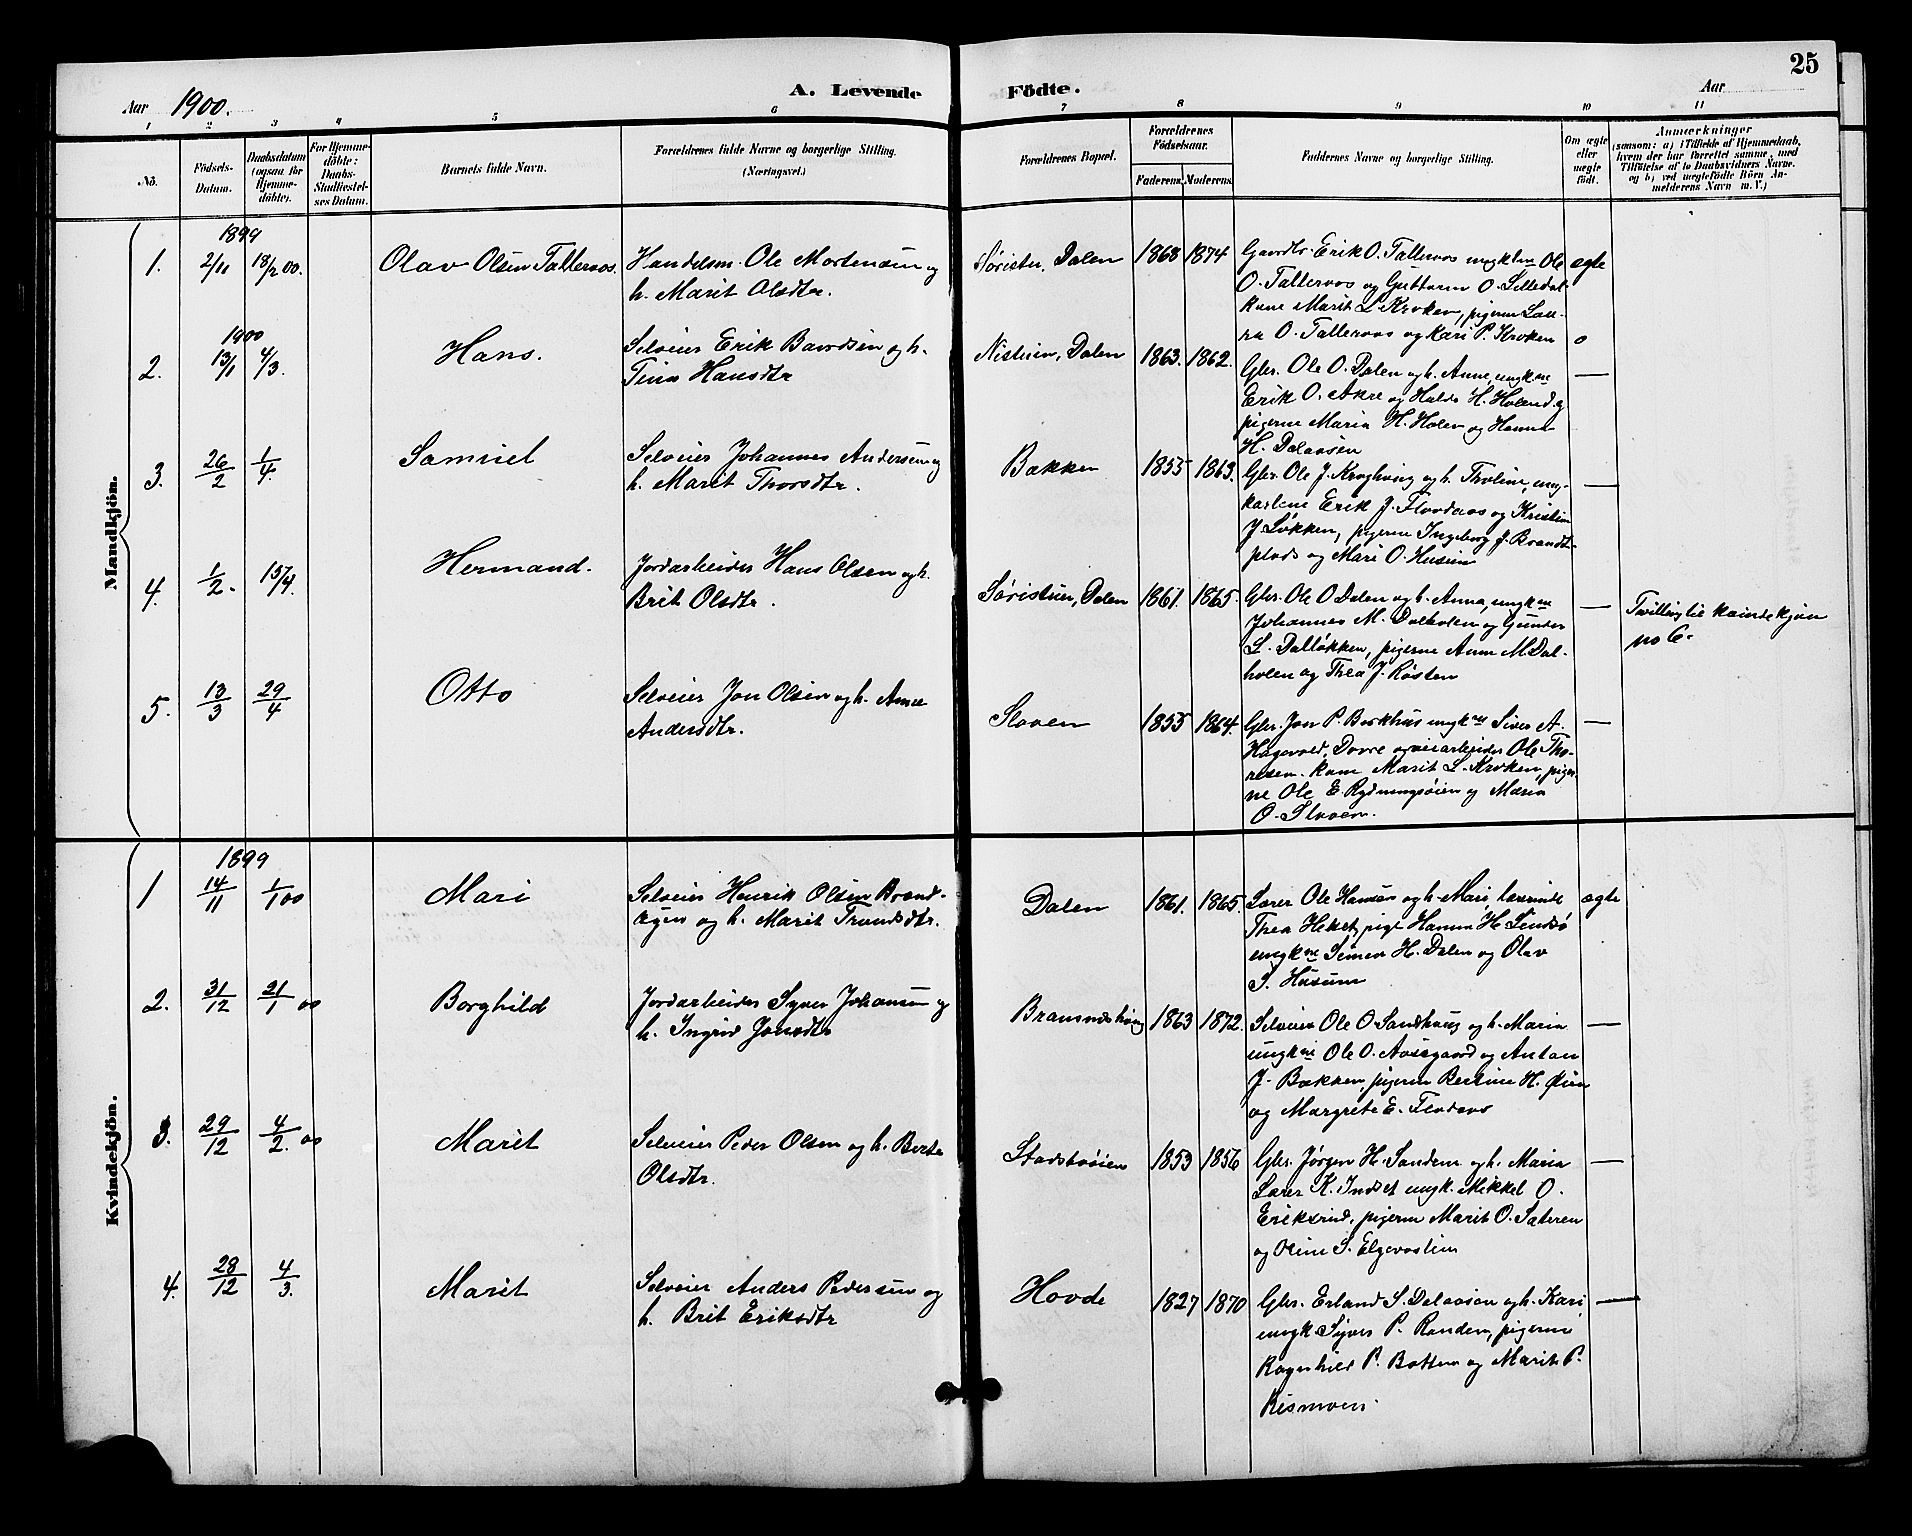 25
A. Levende Födte.
Aar 1900.
Aar
1 2 3 4 5 6 7 8 9 10 11
No.
Födsels-
Datum.
Daabsdatum
(ogsaa for
Hjemme-
döbte).
For Hjemme-
döbte:
Daabs-
Stadfæstel-
ses Datum.
Barnets fulde Navn.
Forældrenes fulde Navne og borgerlige Stilling.
(Næringsvei.)
Forældrenes Bopæl.
Forældrenes
Födselsaar.
Faderens. Moderens.
Faddernes Navne og borgerlige Stilling.
Om ægte
eller
uægte
födt.
Anmærkninger
(saasom: a) i Tilfælde af Hjemmedaab,
hvem der har forrettet samme, med
Tilföielse af to Daabsvidners Navne,
og b) ved uægtefödte Börn An-
melderens Navn m. V.)
Mandkjön.
1899
1. 2/11 18/2 00. Olav Olsen Talleraas. Handelsm. Ole Mortensen og
h. Marit Olsdtr.
Dalen 1868 1874
Gaardbr. Erik O. Talleraas ungkne Ole
O. Talleraas og Guttorm O. Lilledal
kone Marit L. Kroken, pigerne Lau-
ra O. Talleraas og Kari P. Kroken
ægte
o
1900
2. 13/1 4/3. Hans. Selveier Erik Baardsen og h.
Hansdtr
Nistuen, Dalen 1863. 1862.
Gbr. Ole O. Dalen og h. Anne, ungkne
Erik O. Akre og H. Holen og
pigerne Maria H. Holen og Hanna
H. Dalaasen
—
3. 26/2 1/4. Samuel Selveier Johannes Andersen og
h. Marit Thorsdtr.
Bækken 1855 1863.
Gbr. Ole J. Kroghaug og h. Tholine, ung-
karlene Erik J. Flodaas og Kristian
J. Løkken, pigerne Ingeborg J. Brandt-
plads og Mari O. Husum
—
4. 1/2 15/4. Hermand. Jordarbeider Hans Olsen og h.
Brit Olsdtr.
Søristuen, Dalen 1861. 1865.
Gbr. Ole O Dalen og h. Anna, ungkne
Johannes M. Dalholen og Gunder
L. Dalløkken, pigerne Anne M. Dal-
holen og Thea J. Røsten
—
Tvilling til kvindekjøn
no 6.
5. 13/3 29/4 Otto Selveier Jon Olsen og h. Anne
Andersdtr.
Sloven 1855 1864.
Gbr. Jon P. Borkhus ungkne Siver A.
Hagevold, Dovre og veiarbeider Ole Tho-
resen. kone Marit L. Kroken, piger-
ne Ole E. Rydningsøien og Maria
O. Sloven.
—
Kvindekjön.
1899
1 14/11 1/1 00 Mari Selveier Henrik Olsen Brand-
ægen og h. Marit Trondsdtr.
Dalen 1861. 1865.
Lærer Ole Hansen og h. Mari, lærerinde
Thea Heket, pige Hanna H.
ungkne Simen H. Dalen og Olav
S. Husum
ægte
2. 31/12 21/1 00 Borghild Jordarbeider Syver Johansen og
h. Ingrid Jonsdtr
1863 1872.
Selveier Ole O. Sandhaug og h. Maria
ungkne Ole O. Aasgaard og Anton
J. Bækken, pigerne Bertine H. Øien
og Margrete E. Flodaas
—
3. 29/12 4/2. 00 Marit Selveier Peder Olsen og h. Berte
Olsdtr.
1853 1856
Gbr. Jørgen H. Sanden og h. Maria
Lærer K. Indset ungk. Mikkel O.
Eriksrud, pigerne Marit O. Sæteren
og Oline S. Elgevasslien
—
4. 28/12 4/3. Marit Selveier Anders Pedersen og
h. Brit Eriksdtr
Hovde 1827 1870
Gbr. Erland S. Dalaasen og h. Kari,
ungk Syver P. Randen, pigerne
Ragnhild P. Botten og Marit P.
Rismoen.
—